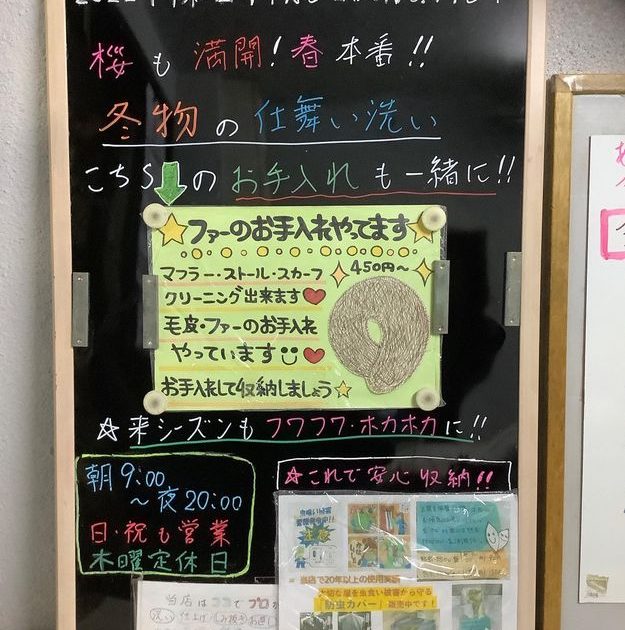 桜も満開!春本番!!
冬物の仕舞い洗い
こちらのお手入れも一緒に!!
ファーのお手入れやってます
マフラー・ストール・スカーフ 450円〜
クリーニング出来ます
毛皮・ファーのお手入れ
やっています
お手入れして収納しましょう
☆来シーズンもフワフワ・ホカホカに!!
朝9:00
〜夜20:00
日・祝も営業
木曜定休日
☆これで安心収納!!
当店で20年以上の使用実績
大切な服を虫食い被害から守る
「防虫カバー」販売中です!
当店はココでプロ